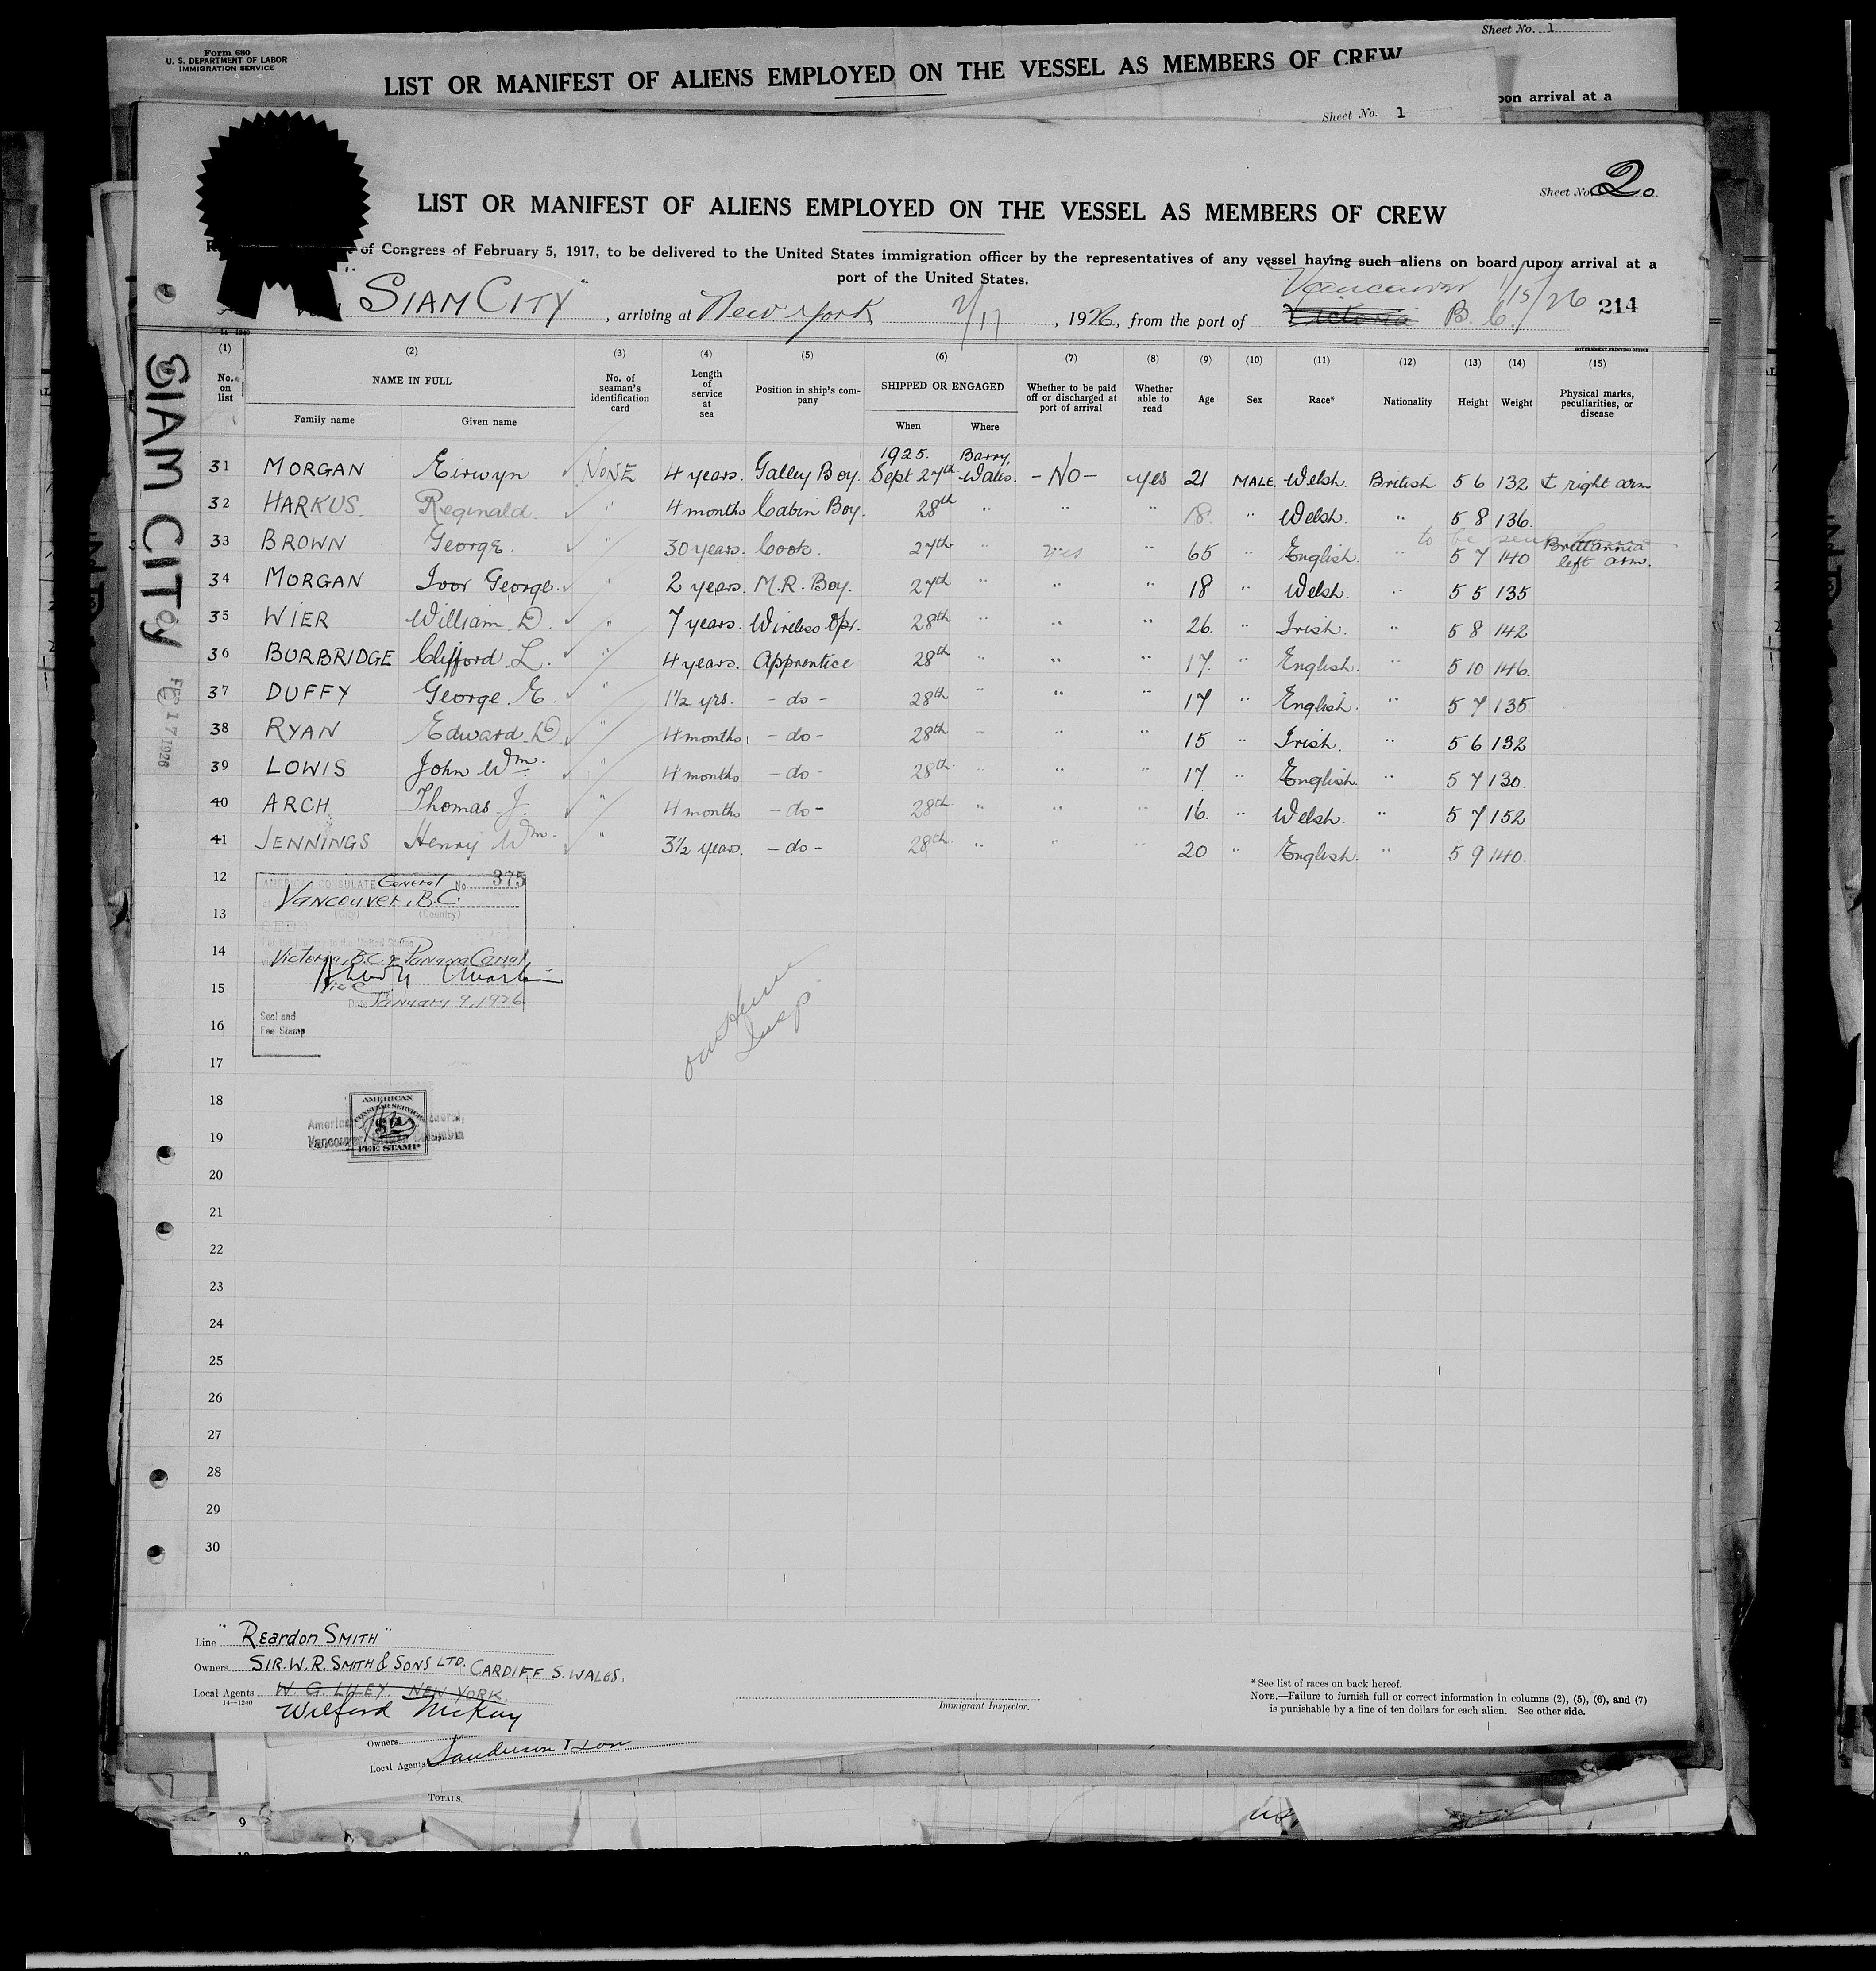 Sheet No. 1
Form 680
U. S. DEPARTMENT OF LABOR
IMMIGRATION SERVICE
LIST OR MANIFEST OF ALIENS EMPLOYED ON THE VESSEL AS MEMBERS OF CREW
pon arrival at a
Sheet No. 1
Sheet No. 2
LIST OR MANIFEST OF ALIENS EMPLOYED ON THE VESSEL AS MEMBERS OF CREW
of Congress of February 5, 1917, to be delivered to the United States immigration officer by the representatives of any vessel having such aliens on board upon arrival at a
port of the United States.
"SIAM CITY", arriving at New York 2/17, 1926, from the port of Victoria Vancouver B.C. 1/15/26 214
14-1240 GOVERNMENT PRINTING OFFICE
(1) (2) (3) (4) (5) (6) (7) (8) (9) (10) (11) (12) (13) (14) (15)
No. on list NAME IN FULL No. of seaman's identification card Length of service at sea Position in ship's company SHIPPED OR ENGAGED Whether to be paid off or discharged at port of arrival Whether able to read Age Sex Race* Nationality Height Weight Physical marks, peculiarities, or disease
Family name Given name When Where
1925. Barry,
31 MORGAN Eirwyn NONE 4 years. Galley Boy. Sept 27th Wales. -NO- yes 21 MALE. Welsh. British 5 6 132 right arm
32 HARKUS. Reginald. " 4 months Cabin Boy. 28th " " " 18. " Welsh. " 5 8 136.
to be
33 BROWN George. " 30 years. Cook. 27th " yes " 65 " English. " 5 7 140 Brittannia left arm.
34 MORGAN Ivor George. " 2 years. M.R. Boy. 27th " " " 18 " Welsh. " 5 5 135
35 WIER William D. " 7 years. Wireless Opr. 28th " " " 26. " Irish. " 5 8 142
36 BURBRIDGE Clifford L. " 4 years. Apprentice 28th " " " 17. " English. " 5 10 146.
37 DUFFY George E. " 1½ yrs. - do - 28th " " " 17 " English. " 5 7 135
38 RYAN Edward D. " 4 months - do - 28th " " " 15 " Irish. " 5 6 132
39 LOWIS John Wm. " 4 months - do - 28th " " " 17. " English " 5 7 130.
40 ARCH. Thomas J. " 4 months - do - 28th " " " 16. " Welsh. " 5 7 152
41 JENNINGS Henry Wm. " 3½ years. - do - 28th " " " 20 " English. " 5 9 140.
12
AMERICAN CONSULATE General No. 375
VANCOUVER, B.C.
(City) (Country)
13
14
Victoria, B.C. & Panama Canal
Vice
15
Date January 9, 1926
16
Seal and
Fee Stamp
17
18
AMERICAN
CONSULAR SERVICE
$2
FEE STAMP
America General,
Vancouver Columbia
19
20
21
22
23
24
25
26
27
28
29
30
SIAM CITY
FEB 17 1926
Line "Reardon SMITH"
Owners SIR. W. R. SMITH & SONS LTD. CARDIFF S. WALES.
Local Agents W. G. LILEY. NEW YORK.
14-1240
Wilford McKay
Immigrant Inspector.
* See list of races on back hereof.
NOTE.—Failure to furnish full or correct information in columns (2), (5), (6), and (7)
is punishable by a fine of ten dollars for each alien. See other side.
Owners
Local Agents Sanderson & Son
TOTALS.
9